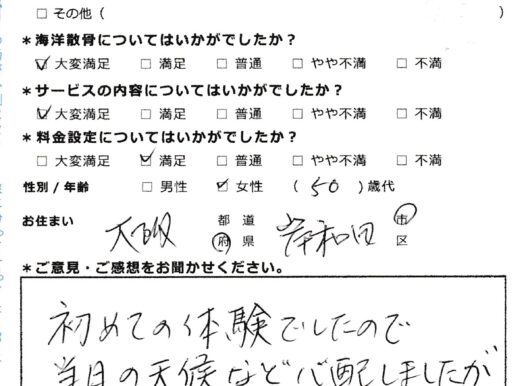 □ その他 （　　　）
＊海洋散骨についてはいかがでしたか？
☑ 大変満足　□ 満足　□ 普通　□ やや不満　□ 不満
＊サービスの内容についてはいかがでしたか？
☑ 大変満足　□ 満足　□ 普通　□ やや不満　□ 不満
＊料金設定についてはいかがでしたか？
□ 大変満足　☑ 満足　□ 普通　□ やや不満　□ 不満
性別 / 年齢　□ 男性　☑ 女性　（ 50 ）歳代
お住まい　大阪　都 道 府 県　岸和田　市 区
＊ご意見・ご感想をお聞かせください。
初めての体験でしたので
当日の天候など心配しましたが